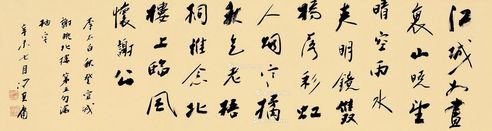 江城如畫
裏山晚望
晴空兩水
夾明鏡雙
橋落彩虹
人烟寒橘
秋色老梧
桐誰念北
樓上臨風
懷謝公
李太白秋登宣城
謝朓北樓 第五句漏
柚字
辛未七月